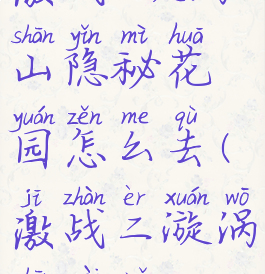 shān yǐn mì huā
山隐秘花
yuán zěn me qù
园怎么去(
jī zhàn èr xuán wō
激战二漩涡